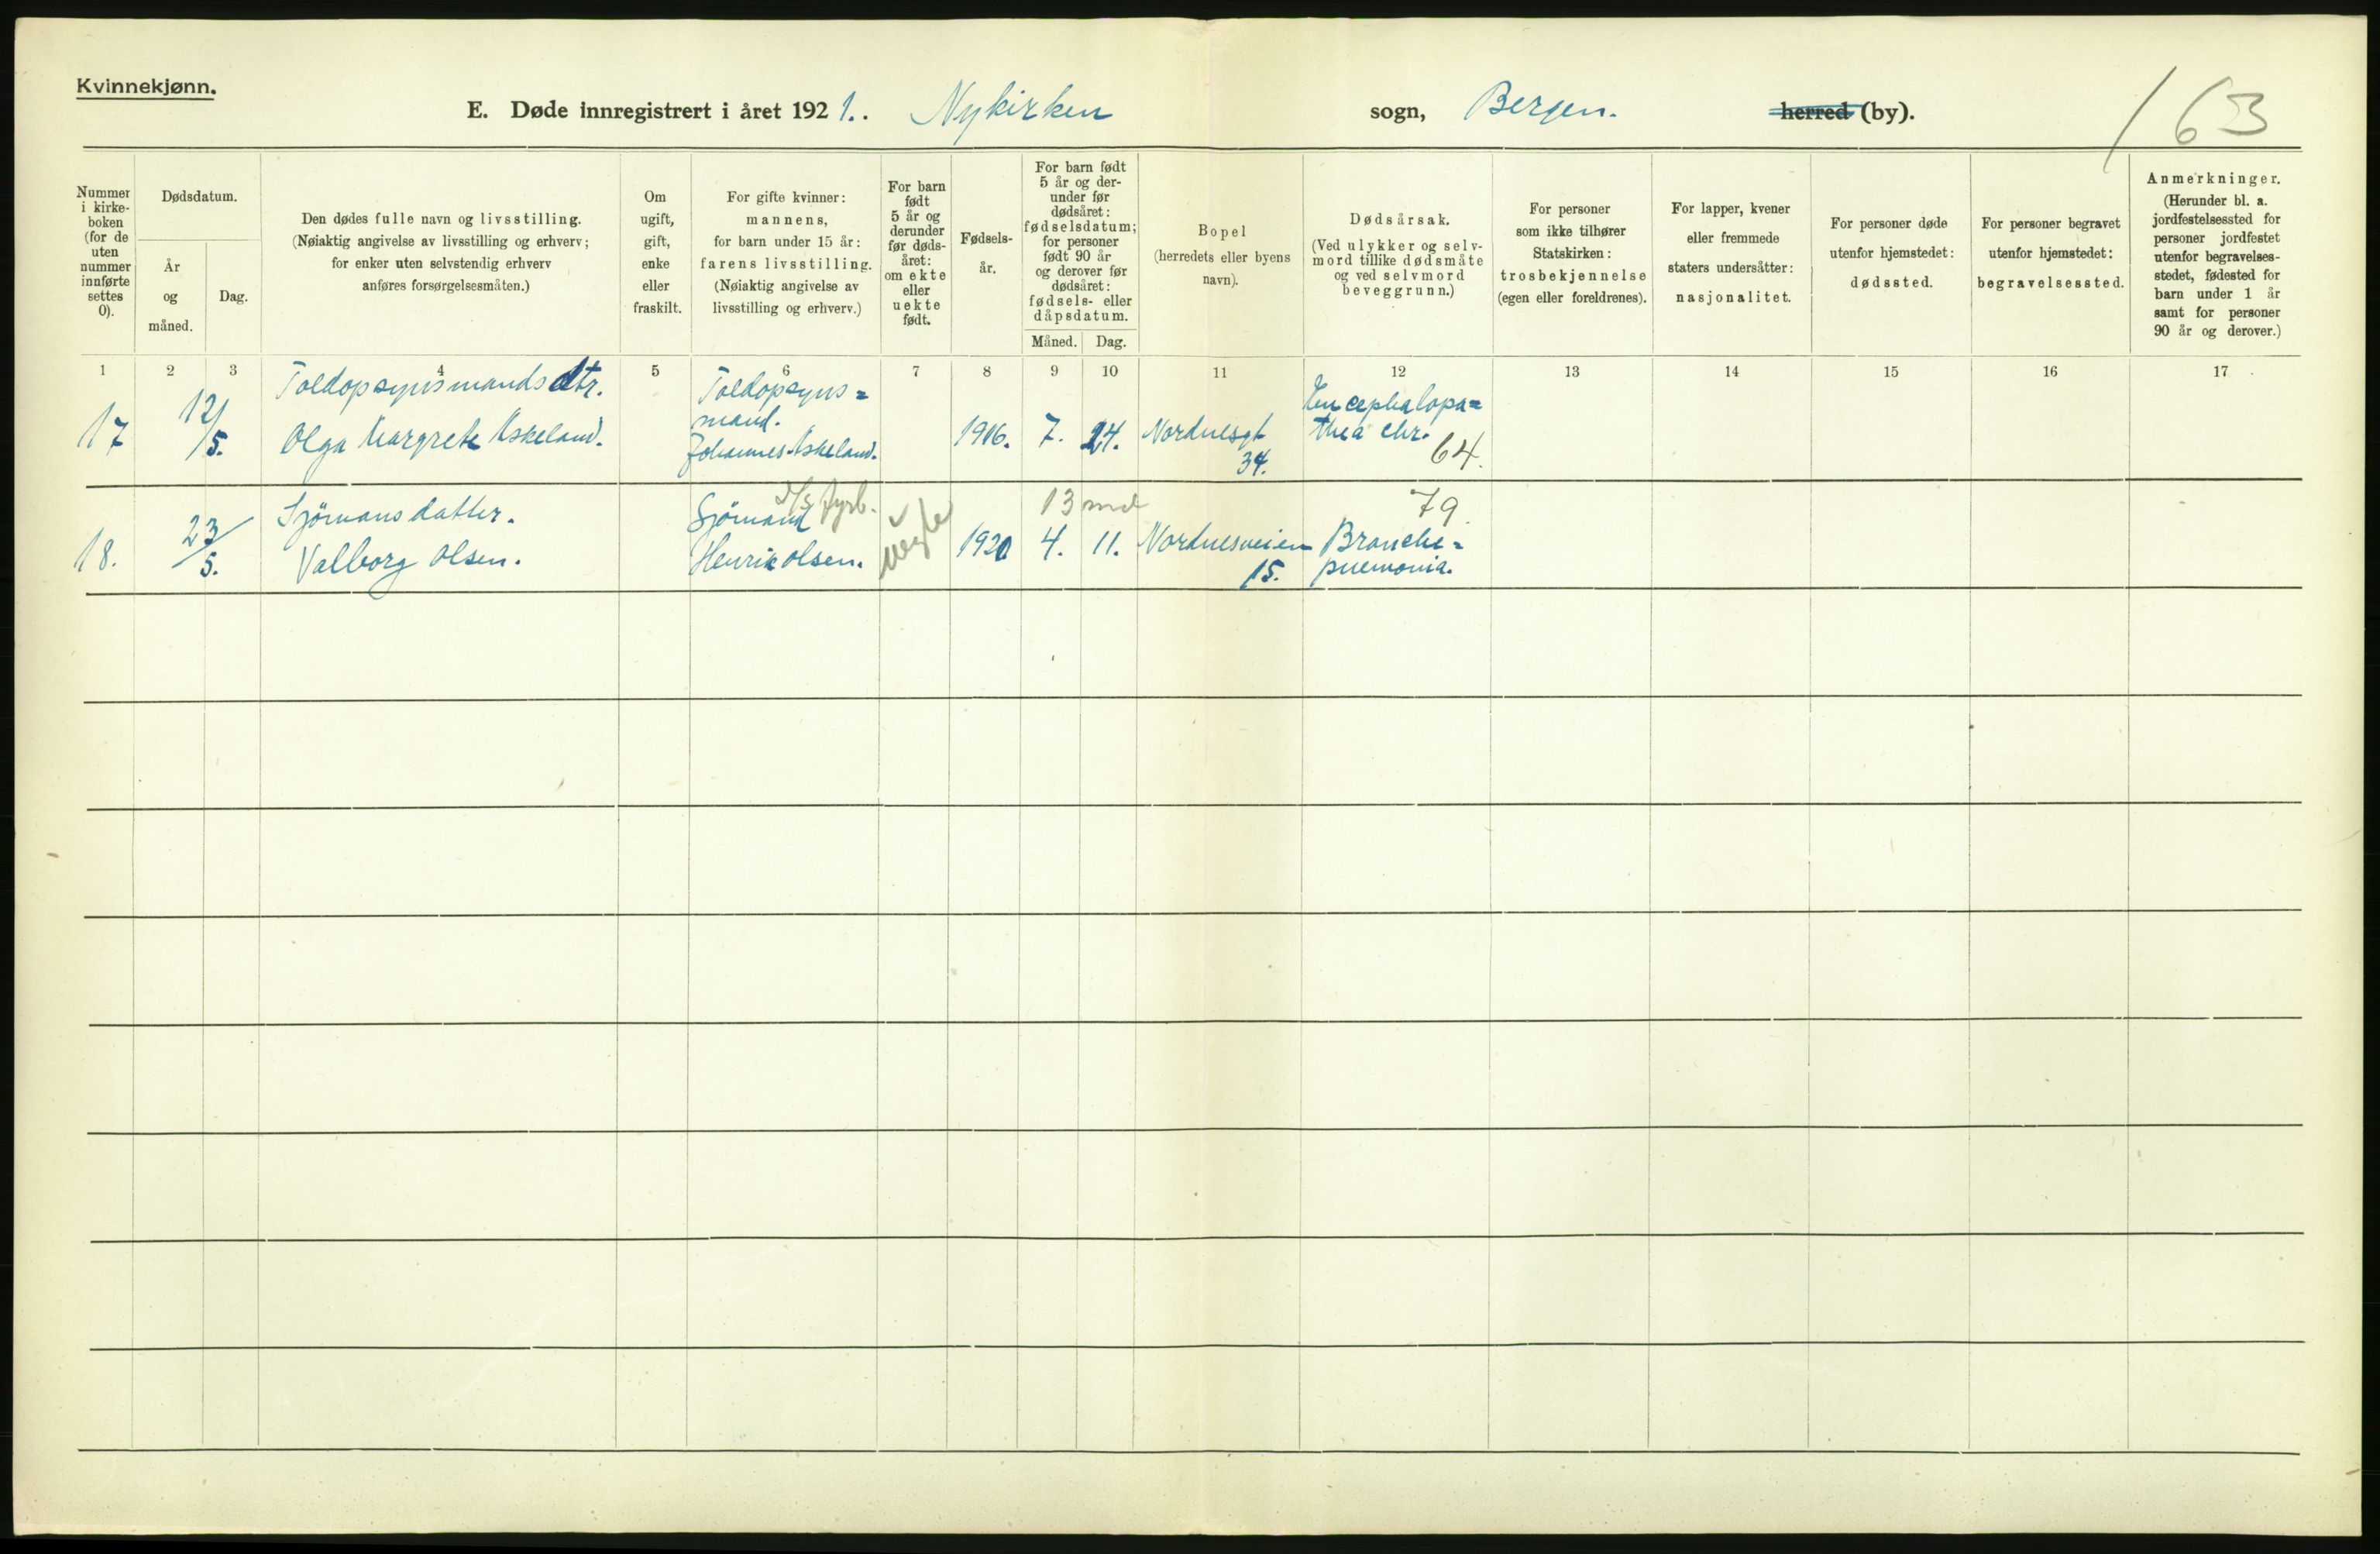 Kvinnekjønn.
E. Døde innregistrert i året 1921.. Nykirken sogn, Bergen. herred (by).
163
Nummer i kirke- boken (for de uten nummer innførte settes 0).
Dødsdatum.
År og måned.
Dag.
Den dødes fulle navn og livsstilling.
(Nøiaktig angivelse av livsstilling og erhverv;
for enker uten selvstendig erhverv
anføres forsørgelsesmåten.)
Om ugift, gift, enke eller fraskilt.
For gifte kvinner:
mannens,
for barn under 15 år:
farens livsstilling.
(Nøiaktig angivelse av
livsstilling og erhverv.)
For barn født 5 år og derunder før døds- året: om ekte eller uekte født.
Fødsels- år.
For barn født
5 år og der-
under før
dødsåret:
fødselsdatum;
for personer
født 90 år
og derover før
dødsåret:
fødsels- eller
dåpsdatum.
Måned. Dag.
Bopel
(herredets eller byens
navn).
Dødsårsak.
(Ved ulykker og selv-
mord tillike dødsmåte
og ved selvmord
beveggrunn.)
For personer
som ikke tilhører
Statskirken:
trosbekjennelse
(egen eller foreldrenes).
For lapper, kvener
eller fremmede
staters undersåtter:
nasjonalitet.
For personer døde
utenfor hjemstedet:
dødssted.
For personer begravet
utenfor hjemstedet:
begravelsessted.
Anmerkninger.
(Herunder bl. a.
jordfestelsessted for
personer jordfestet
utenfor begravelses-
stedet, fødested for
barn under 1 år
samt for personer
90 år og derover.)
1 2 3 4 5 6 7 8 9 10 11 12 13 14 15 16 17
17 12/5. Toldopsynsmands dtr.
Olga Margrete Askeland.
Toldopsyns=
mand.
Johannes Askeland.
1916. 7. 24. Nordnesgt
34.
Encephalopa=
thea chr.
64.
18. 23/5. Sjömans datter.
Valborg Olsen.
Sjömand
D/S fyrb.
Henrik Olsen.
uegte
1920 4. 11.
13 md
Nordnesveien
15.
79.
Bronche=
pnemonia.